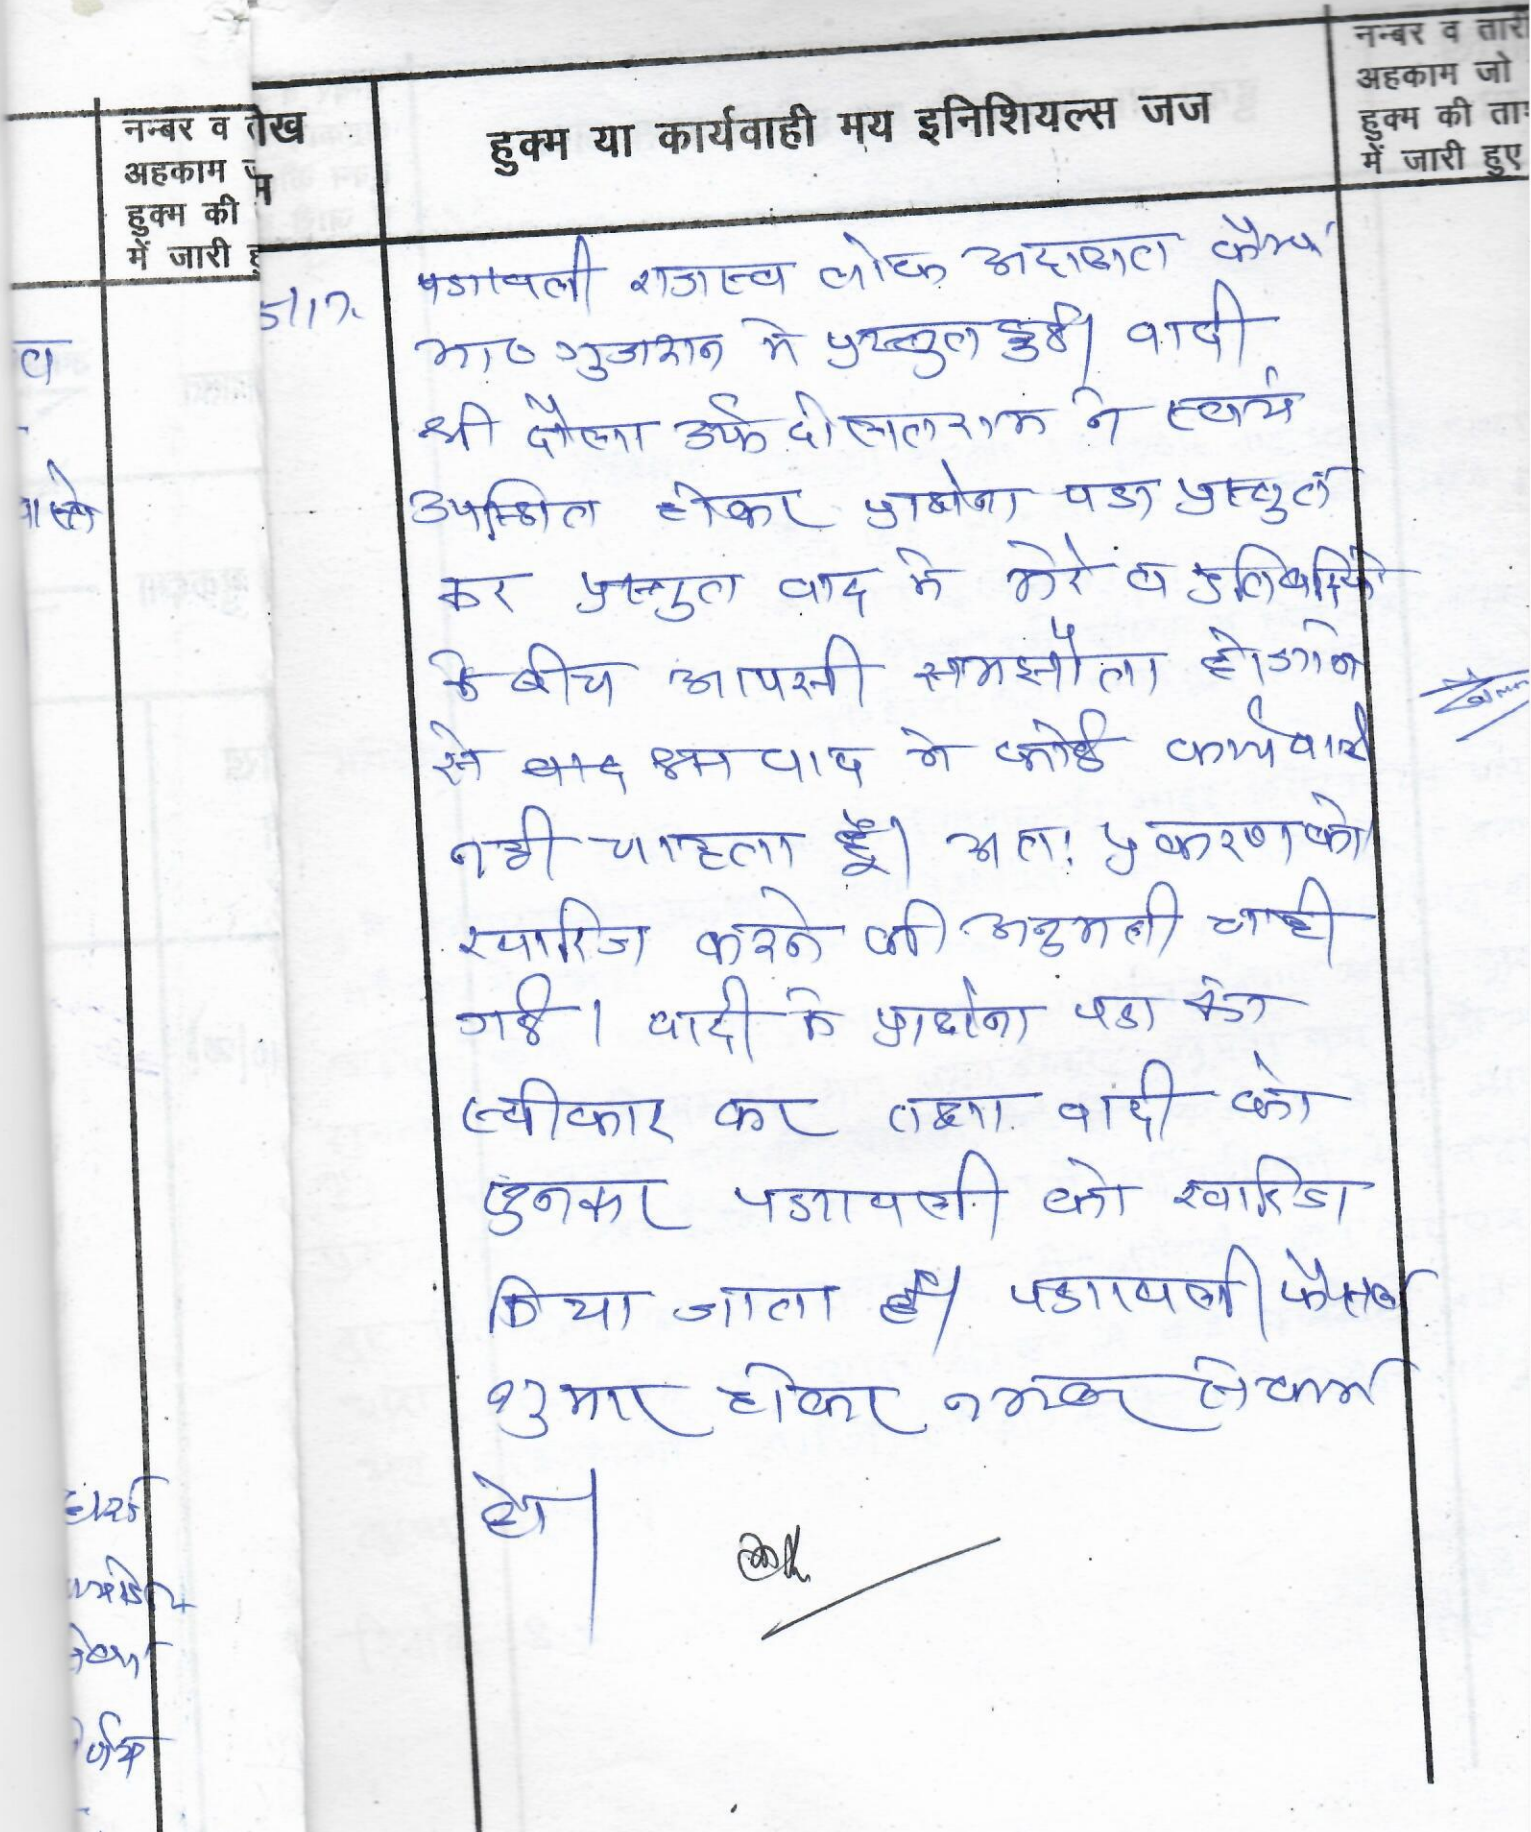 नम्बर व
अहकाम
हुक्म की
में जारी
व
तेख
हुक्म या कार्यवाही मय इनिशियल्स जज
नम्बर व तारी
अहकाम जो
हुक्म की ता
में जारी हुए
5/17
पत्रावली राजस्व लोक अदालत कैम्प
गुजरान मे प्रस्तुत हुई। वादी
श्री दौला उर्फ दौलतराम ने स्वयं
उपस्थित होकर प्रार्थना पत्र प्रस्तुत
कर प्रस्तुत वाद मे मेरे व प्रतिवादियो
के बीच आपसी समझौता होजाने
से वाद मे कोई कार्यवाही
नही चाहता हूँ। अतः प्रकरण को
खारिज करने की अनुमती चाही
गई। वादी के प्रार्थना पत्र
स्वीकार कर तथा वादी को
सुनकर पत्रावली को खारिज
किया जाता है। पत्रावली फैसल
शुमार होकर नम्बर से कम
हो।